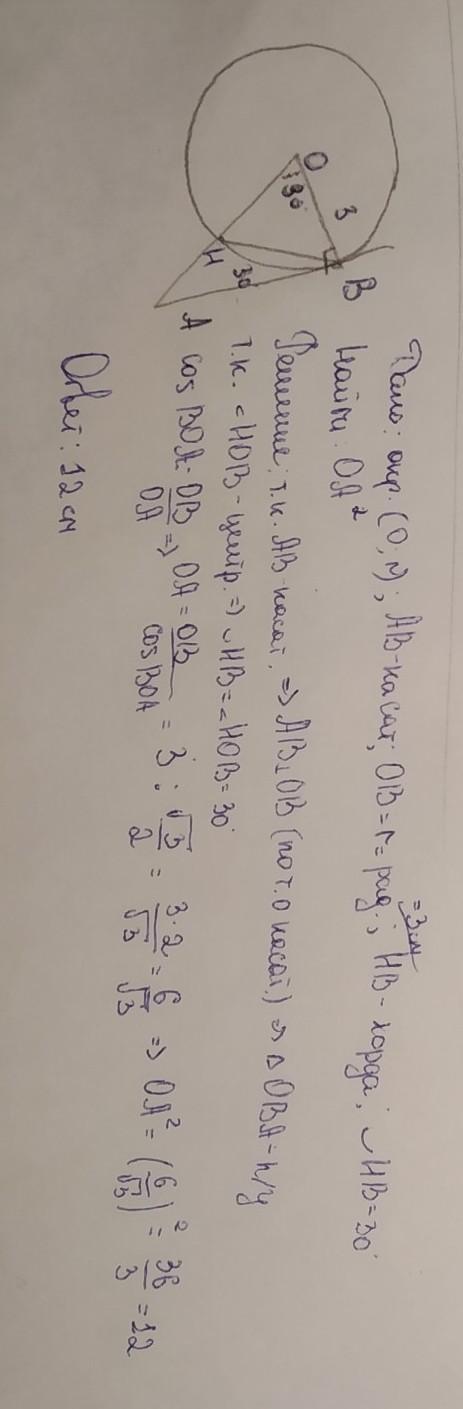 Дано: окр. (O; r); AB-касат; OB=r=рад.=3см; HB-хорда; ◡HB=30°
Найти: OA²
Решение: т.к. AB-касат. => AB⊥OB (по т. о касат.) => △OBA-п/у
т.к. ∠HOB-центр. => ◡HB=∠HOB=30°
cos BOA = OB/OA => OA = OB/cos BOA = 3 : √3/2 = 3·2/√3 = 6/√3 => OA² = (6/√3)² = 36/3 = 12
Ответ: 12 см
O
30°
3
B
H
30°
A